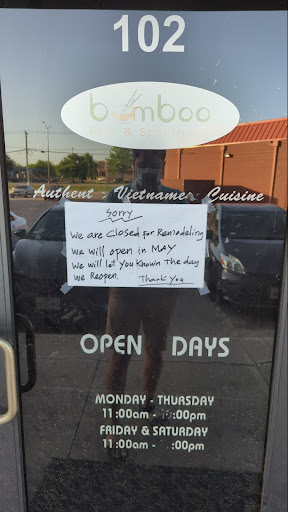 102
bamboo
Authent Vietnames Cuisine
Sorry
We are Closed for Remodeling
We will open in MAY
We will let You Known The day
We Reopen. Thank You
OPEN DAYS
MONDAY - THURSDAY
11:00am - :00pm
FRIDAY & SATURDAY
11:00am - :00pm